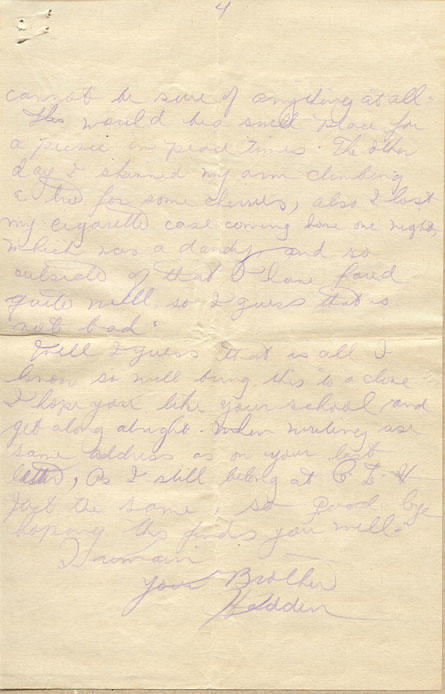 4
cannot be sure of anything at all.
This would be a swell place for
a picnic in peace times. The other
day I skinned my arm climbing
a tree for some cherries, also I lost
my cigarette case coming home one night,
which was a dandy and so
outside of that I have fared
quite well so I guess that is
not bad.
Well I guess that is all I
know so will bring this to a close
I hope you like your school and
get along alright. When writing use
same address as on your last
letter, As I still belong at
just the same, so good bye
hoping this finds you well.
I remain
Your Brother
Hadden